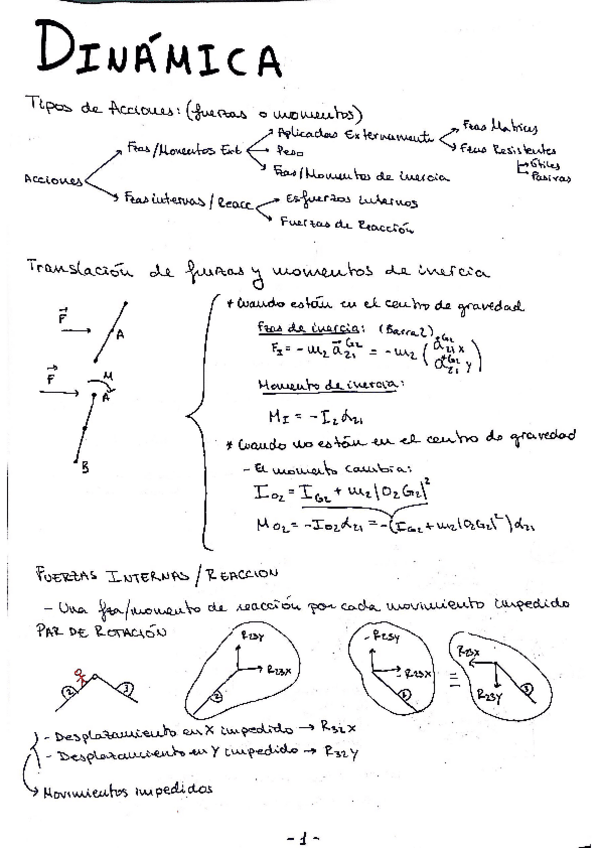 DINÁMICA
Tipos de Acciones: (fuerzas o momentos)
Acciones
Fzas/Momentos Ext
Aplicadas Externamente
Fzas Motrices
Fzas Resistentes
Útiles
Pasivas
Peso
Fzas/Momentos de inercia
Fzas internas / Reacc
Esfuerzos internos
Fuerzas de Reacción
Translación de fuerzas y momentos de inercia
F⃗
A
F⃗
M
A
B
* Cuando están en el centro de gravedad
Fzas de inercia: (Barra 2)
F_I = -m₂ a⃗₂₁^G₂ = -m₂ (a₂₁^G₂ x
a₂₁^G₂ y)
Momento de inercia:
M_I = -I₂ α₂₁
* Cuando no están en el centro de gravedad
- El momento cambia:
I_O₂ = I_G₂ + m₂ |O₂G₂|²
M_O₂ = -I_O₂ α₂₁ = -(I_G₂ + m₂ |O₂G₂|²) α₂₁
FUERZAS INTERNAS / REACCION
- Una fza/momento de reacción por cada movimiento impedido
PAR DE ROTACIÓN
2
3
R23Y
R23X
2
-R23Y
-R23X
3
=
R23X
R23Y
3
- Desplazamiento en X impedido → R32X
- Desplazamiento en Y impedido → R32Y
→ Movimientos impedidos
- 1 -